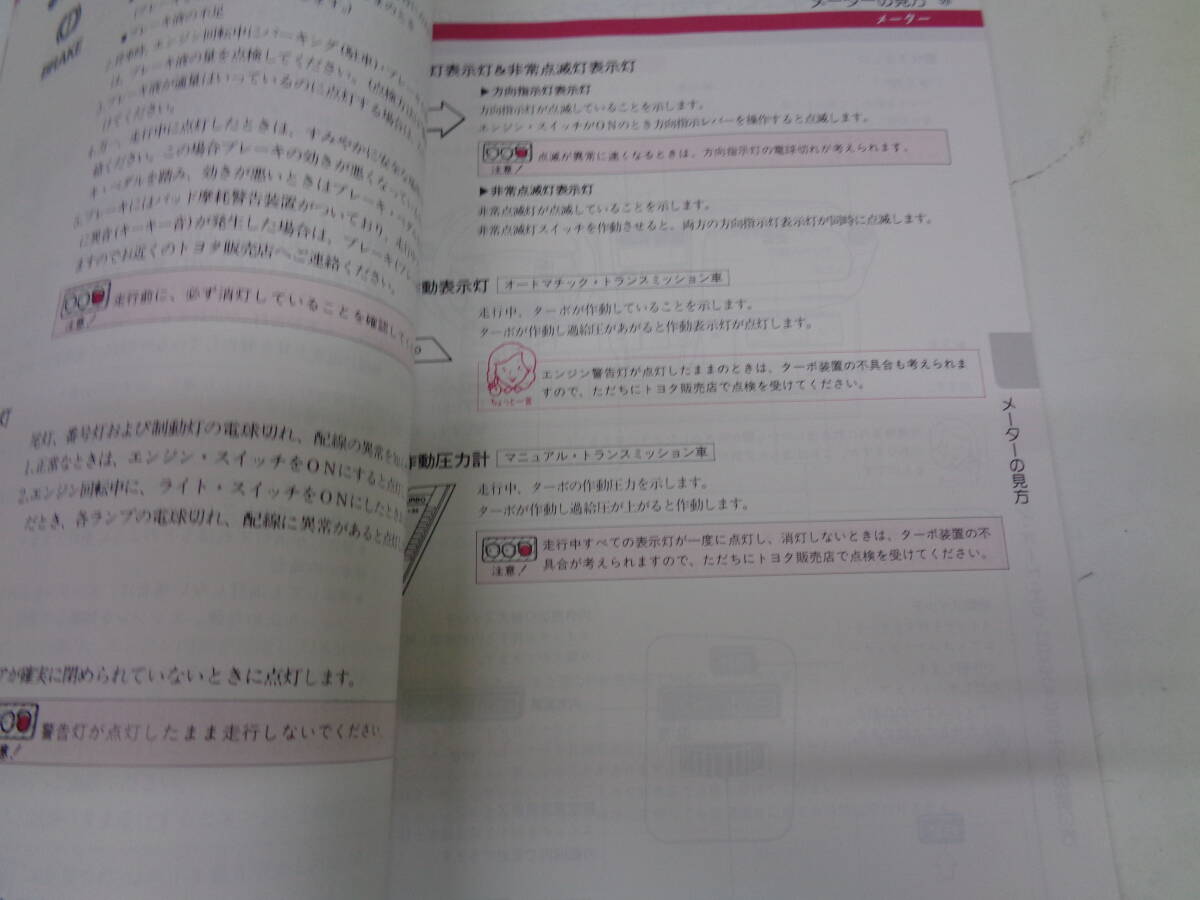 BRAKE
ブレーキ液の不足
エンジン回転中にパーキング(駐車)・ブレーキ
ブレーキ液の量を点検してください。(点検方法
ブレーキ液が適量はいっているのに点灯する場合は、
けてください。
走行中に点灯したときは、すみやかに安全な場所
絡ください。この場合ブレーキの効きが悪くなってい
キ・ペダルを踏み、効きが悪いときはブレーキ・ペダル
ブレーキにはパッド摩耗警告装置がついており、走行中
に異音(キーキー音)が発生した場合は、ブレーキ
ますのでお近くのトヨタ販売店へご連絡ください。
走行前に、必ず消灯していることを確認して
注意!
灯
尾灯、番号灯および制動灯の電球切れ、配線の異常を
1.正常なときは、エンジン・スイッチをONにすると点灯
2.エンジン回転中に、ライト・スイッチをONにしたとき
だとき、各ランプの電球切れ、配線に異常があると点灯
アが確実に閉められていないときに点灯します。
警告灯が点灯したまま走行しないでください。
意!
メーターの見方
メーター
灯表示灯&非常点滅灯表示灯
▶方向指示灯表示灯
方向指示灯が点滅していることを示します。
エンジン・スイッチがONのとき方向指示レバーを操作すると点滅します。
点滅が異常に速くなるときは、方向指示灯の電球切れが考えられます。
注意!
▶非常点滅灯表示灯
非常点滅灯が点滅していることを示します。
非常点滅灯スイッチを作動させると、両方の方向指示灯表示灯が同時に点滅します。
動表示灯 オートマチック・トランスミッション車
走行中、ターボが作動していることを示します。
ターボが作動し過給圧があがると作動表示灯が点灯します。
エンジン警告灯が点灯したままのときは、ターボ装置の不具合も考えられま
すので、ただちにトヨタ販売店で点検を受けてください。
ちょっと一言
作動圧力計 マニュアル・トランスミッション車
走行中、ターボの作動圧力を示します。
ターボが作動し過給圧が上がると作動します。
走行中すべての表示灯が一度に点灯し、消灯しないときは、ターボ装置の不
具合が考えられますので、ただちにトヨタ販売店で点検を受けてください。
注意!
メーターの見方